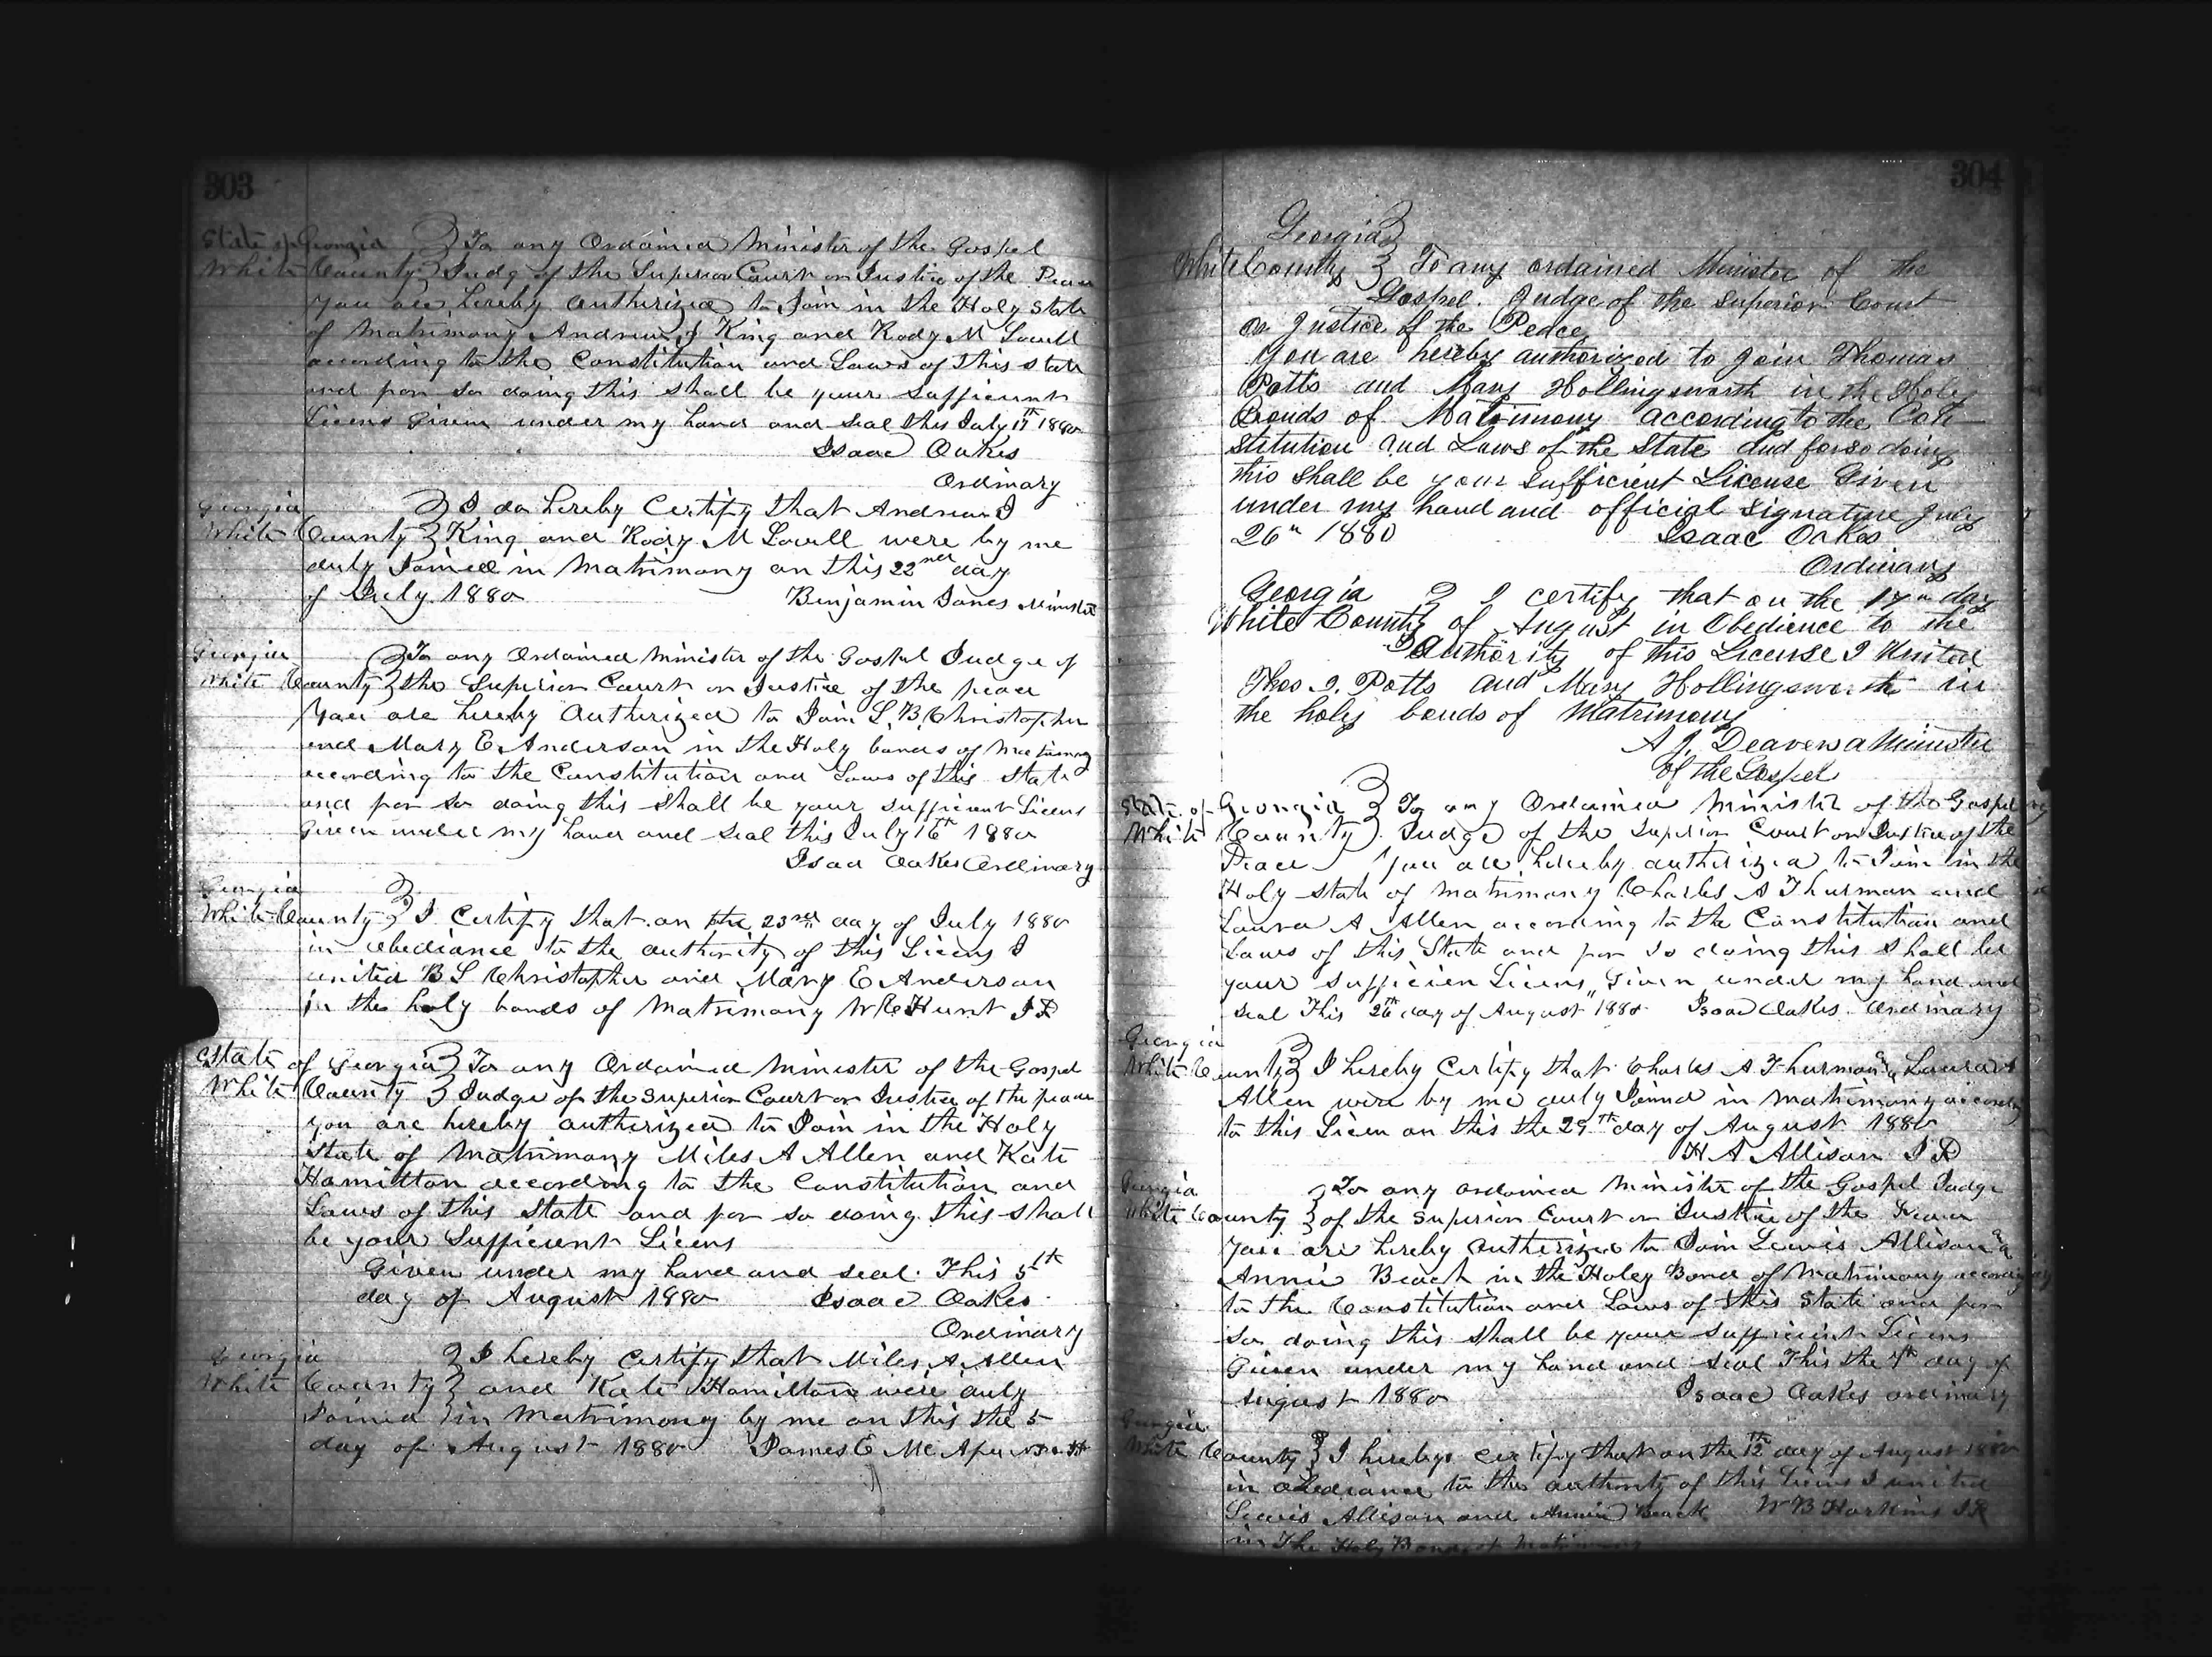 303
State of Georgia } To any Ordained Minister of the Gospel
White County } Judg of the Superior Court or Justice of the Peace
You are hereby Authorized to Join in the Holy State
of Matrimony Andrew J King and Rody M Lovell
according to the Constitution and Laws of this State
and for so doing this shall be your Sufficient
Licens Given under my hand and seal this July 17th 1880
Isaac Oakes
Ordinary
Georgia } I do hereby Certify that Andrew J
White County } King and Rody M Lovell were by me
duly Joined in Matrimony on this 22nd day
of July 1880 Benjamin Jones Minister
Georgia } To any Ordained Minister of the Gospel Judge of
White County } the Superior Court or Justice of the peace
You are hereby Authorized to Join L. B. Christopher
and Mary E Anderson in the Holy bonds of Matrimony
according to the Constitution and Laws of this State
and for so doing this shall be your sufficient Licens
Given under my hand and seal this July 16th 1880
Isaac Oakes Ordinary
Georgia
White County } I Certify that on the 23rd day of July 1880
in obediance to the authority of this Licens I
united B L Christopher and Mary E Anderson
in the holy bonds of Matrimony W R Hunt J P
State of Georgia } To any Ordained Minister of the Gospel
White County } Judge of the Superior Court or Justice of the peace
you are hereby authorized to Join in the Holy
State of Matrimony Miles A Allen and Kate
Hamilton according to the Constitution and
Laws of this State and for so doing this shall
be your Sufficient Licens
Given under my hand and seal. This 5th
day of August 1880 Isaac Oakes
Ordinary
Georgia } I hereby Certify that Miles A Allen
White County } and Kate Hamilton were duly
Joined in Matrimony by me on this the 5
day of August 1880 James E Mc Afee
304
Georgia }
White County } To any ordained Minister of the
Gospel. Judge of the Superior Court
or Justice of the Peace
You are hereby authorized to Join Thomas
Potts and Mary Hollingsworth in the Holy
Bonds of Matrimony according to the Con
stitution and Laws of the State and for so doing
this shall be your sufficient License Given
under my hand and official signature July
26th 1880 Isaac Oakes
Ordinary
Georgia } I certify that on the 17th day
White County } of August in Obedience to the
Authority of this License I United
Thos. J. Potts and Mary Hollingsworth in
the holy bonds of Matrimony
A J. Deaven a Minister
of the Gospel
State of Georgia } To any Ordained Minister of the Gospel
White County } Judge of the Superior Court or Justice of the
Peace You are hereby authorized to Join in the
Holy State of Matrimony Charles A Thurman and
Laura A Allen according to the Constitution and
Laws of this State and for so doing this shall be
your sufficien Licens Given under my hand and
seal This 26th day of August 1880 Isaac Oakes Ordinary
Georgia
White County } I hereby Certify that Charles A Thurman and Laura A
Allen were by me duly Joined in Matrimony according
to this Licen on this the 29th day of August 1880
H A Allison J P
Georgia } To any ordained Minister of the Gospel Judge
White County } of the Superior Court or Justice of the Peace
You are hereby Authorized to Join Lewis Allison and
Annie Beach in the Holey Bond of Matrimony according
to the Constitution and Laws of this State and for
so doing this shall be your sufficient Licens
Given under my hand and seal This the day of
August 1880 Isaac Oakes ordinary
Georgia
White County } I hereby certify that on the 12th day of August 1880
in obediance to the authority of this Licens I united
Lewis Allison and Annie Beach W B Harkins J P
in The Holy Bonds of Matrimony